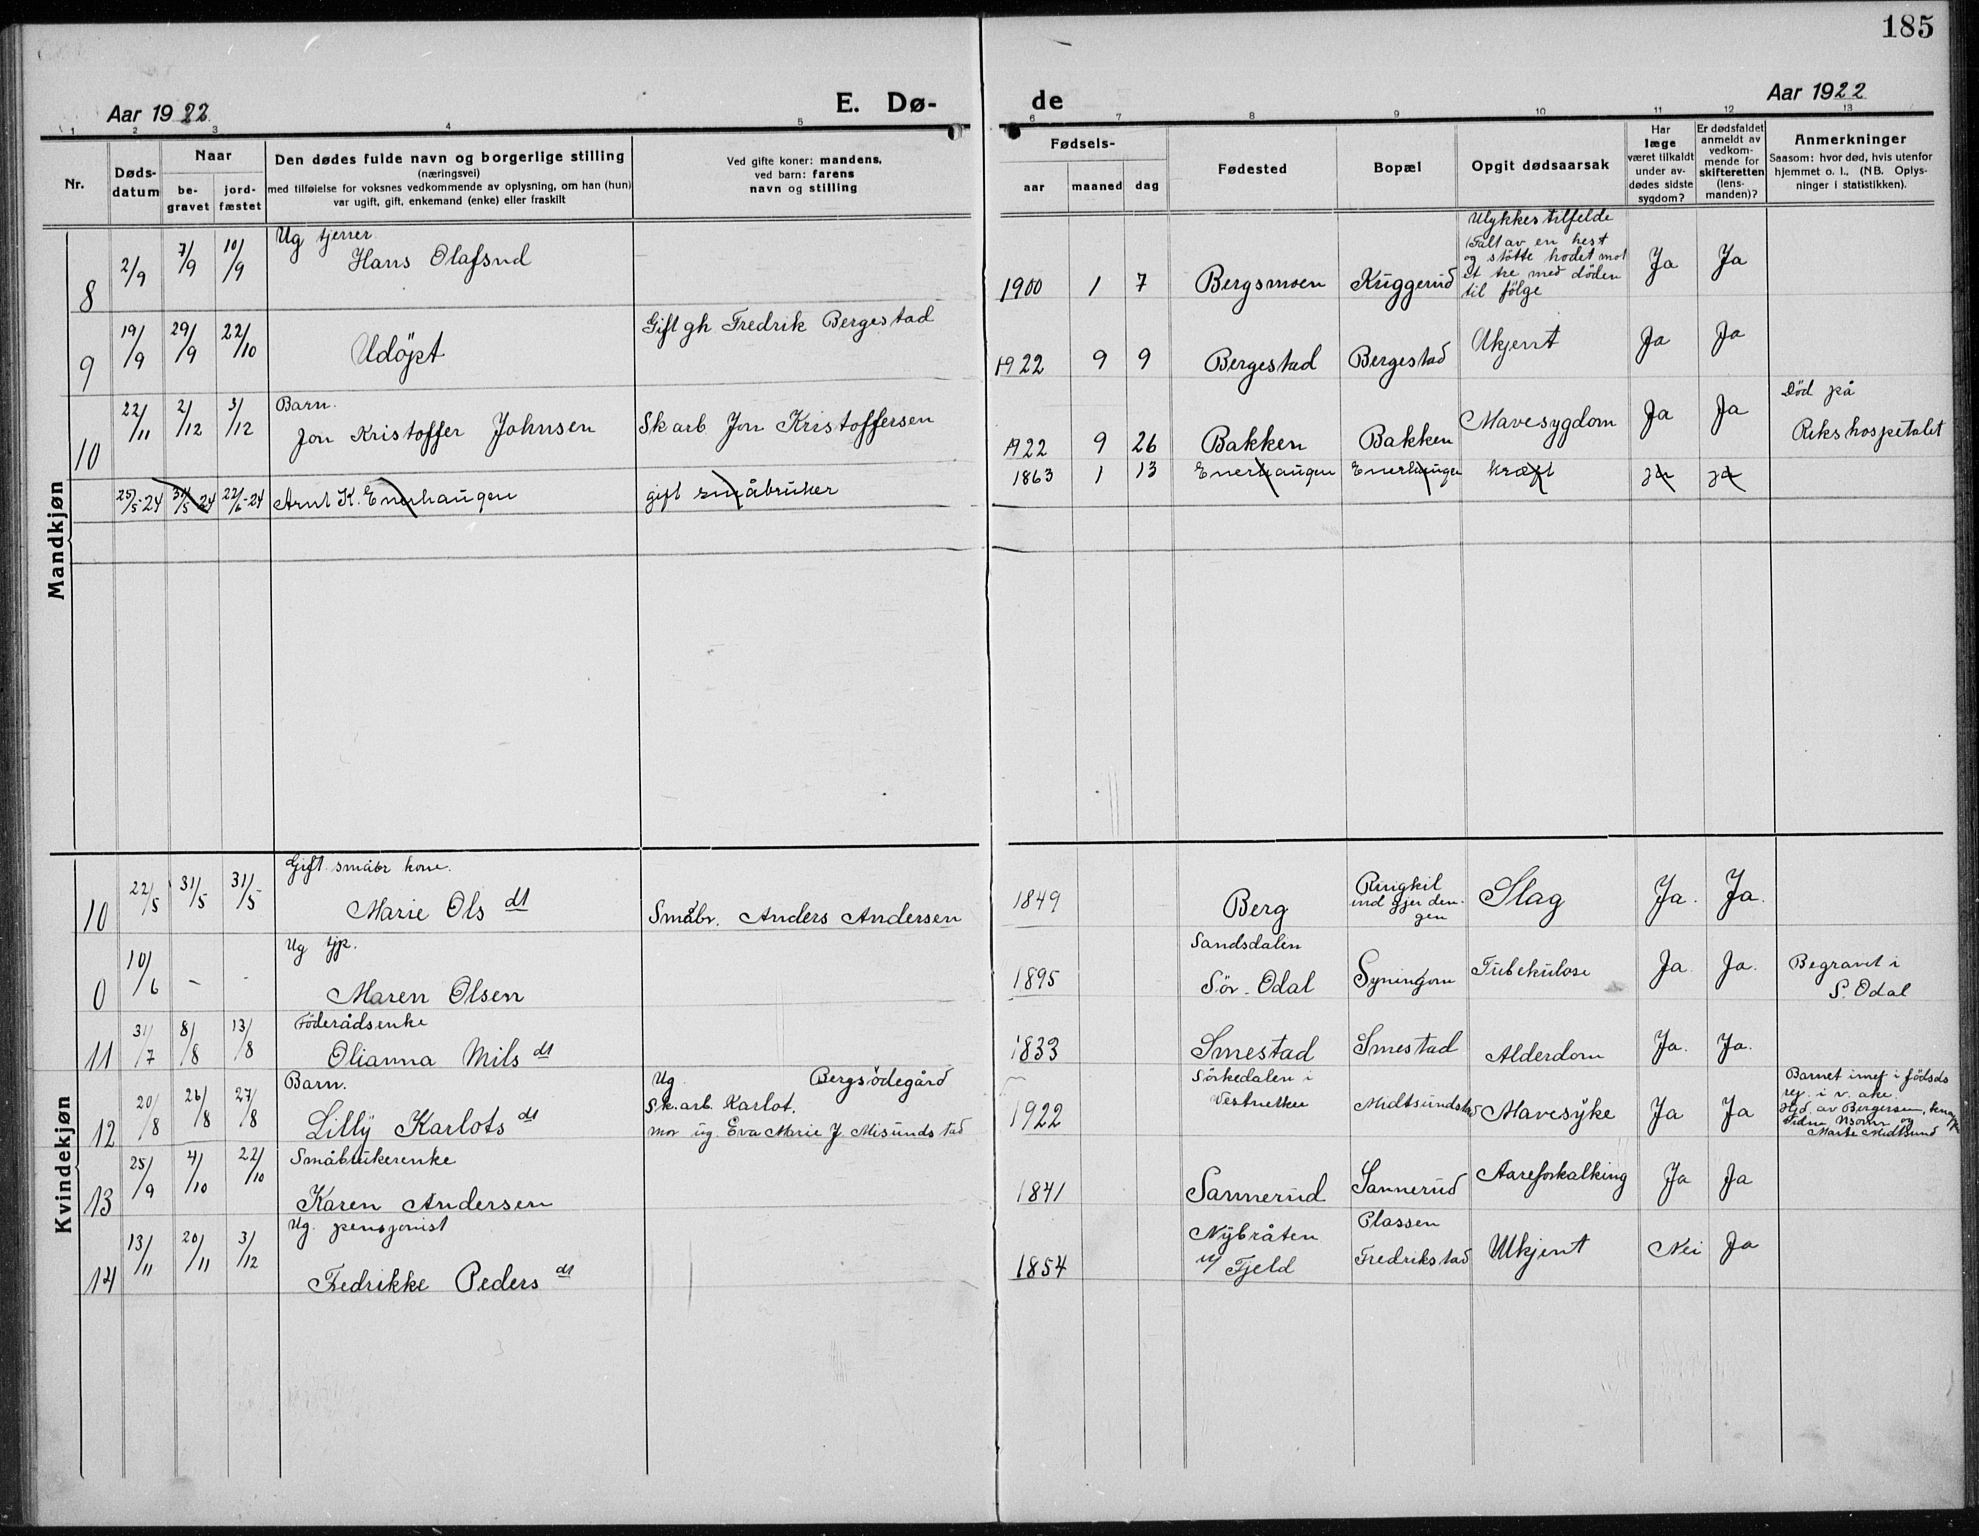 185
Aar 1922
E. Dø-
de
Aar 1922
1 2 3 4 5 6 7 8 9 10 11 12 13
Nr.
Døds-
datum
Naar
be-
gravet
jord-
fæstet
Den dødes fulde navn og borgerlige stilling
(næringsvei)
med tilføielse for voksnes vedkommende av oplysning, om han (hun)
var ugift, gift, enkemand (enke) eller fraskilt
Ved gifte koner: mandens,
ved barn: farens
navn og stilling
Fødsels-
aar maaned dag
Fødested
Bopæl
Opgit dødsaarsak
Har
læge
været tilkaldt
under av-
dødes sidste
sygdom?
Er dødsfaldet
anmeldt av
vedkom-
mende for
skifteretten
(lens-
manden)?
Anmerkninger
Saasom: hvor død, hvis utenfor
hjemmet o. l.. (NB. Oplys-
ninger i statistikken).
Mandkjøn
8 2/9 7/9 10/9 Ug tjener
Hans Olafsnd
1900 1 7 Bergsmoen Kuggerud
Ulykkestilfelde
(Falt av en hest
og støtte hodet mot
et tre med døden
til følge
Ja Ja
9 19/9 29/9 22/10 Udøpt
Gift gh Fredrik Bergestad
1922 9 9 Bergestad Bergestad Ukjent Ja Ja
10 22/11 2/12 3/12 Barn.
Jon Kristoffer Johnsen
Skarb Jon Kristoffersen
1922 9 26 Bakken Bakken Mavesygdom Ja Ja
Død på
Rikshospitalet
25/5-24 31/5 24 22/6-24 Arnt K. Enerhaugen gift småbruker
1863 1 13 Enerhaugen Enerhaugen kræft ja ja
Kvindekjøn
10 22/5 31/5 31/5 Gift småbr kone.
Marie Ols dt
Småbr. Anders Andersen
1849 Berg
Ringkil
ind gjerden-
gen
Slag Ja. Ja.
0 10/6 - - Ug tjp.
Maren Olsen
1895
Sandsdalen
Sör-Odal
Syningom Tubekulose Ja. Ja.
Begravet i
S. Odal
11 31/7 8/8 13/8 Föderådsenke
Olianna Nils dt
1833 Smestad Smestad Alderdom Ja. Ja.
12 20/8 26/8 27/8 Barn.
Lilly Karlots dt
Ug Bergsödegård
Sk.arb. Karlot.
mor ug. Eva Marie J. Misundstad
1922
Sörkedalen i
Vestnekke
Midtsundstad Mavesyke Ja Ja
Barnet inef i födsds
rej. i v. ake.
Hjd. av Bergersen,
og
Marte Midtsund
13 25/9 4/10 22/10 Småbrukerenke
Karen Andersen
1841 Sannerud Sannerud Aareforkalking Ja Ja
14 13/11 20/11 3/12 Ug. pensjonist
Fredrikke Peders dt
1854
Nybråten
u/ Fjeld
Plassen
Fredrikstad
Ukjent Nei Ja